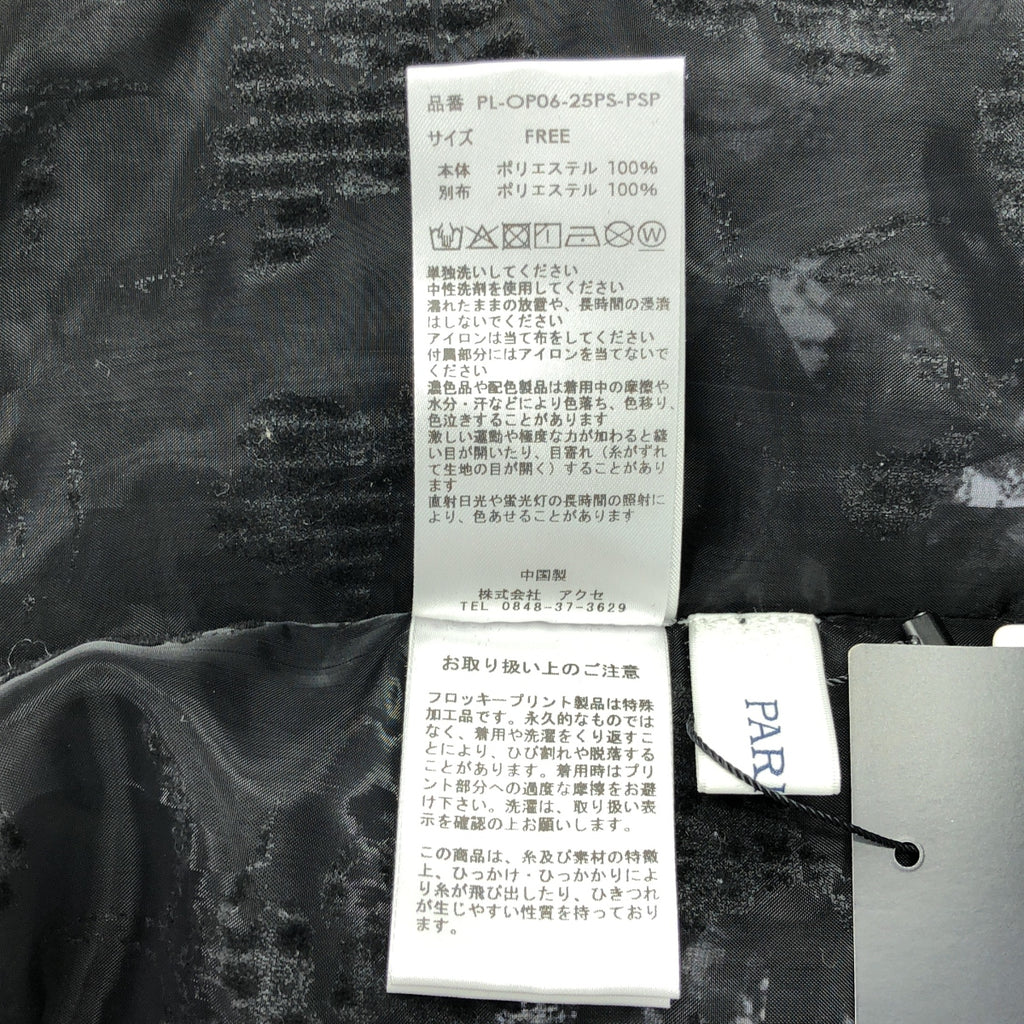 品番 PL-OP06-25PS-PSP
サイズ FREE
本体 ポリエステル 100%
別布 ポリエステル 100%
W
単独洗いしてください
中性洗剤を使用してください
濡れたままの放置や、長時間の浸漬
はしないでください
アイロンは当て布をしてください
付属部分にはアイロンを当てないで
ください
濃色品や配色製品は着用中の摩擦や
水分・汗などにより色落ち、色移り、
色泣きすることがあります
激しい運動や極度な力が加わると縫
い目が開いたり、目寄れ(糸がずれ
て生地の目が開く)することがあり
ます
直射日光や蛍光灯の長時間の照射に
より、色あせることがあります
中国製
株式会社 アクセ
TEL 0848-37-3629
お取り扱い上のご注意
フロッキープリント製品は特殊
加工品です。永久的なものでは
なく、着用や洗濯をくり返すこ
とにより、ひび割れや脱落する
ことがあります。着用時はプリ
ント部分への過度な摩擦をお避
け下さい。洗濯は、取り扱い表
示を確認の上お願いします。
この商品は、糸及び素材の特徴
上、ひっかけ・ひっかかりによ
り糸が飛び出したり、ひきつれ
が生じやすい性質を持っており
ます。